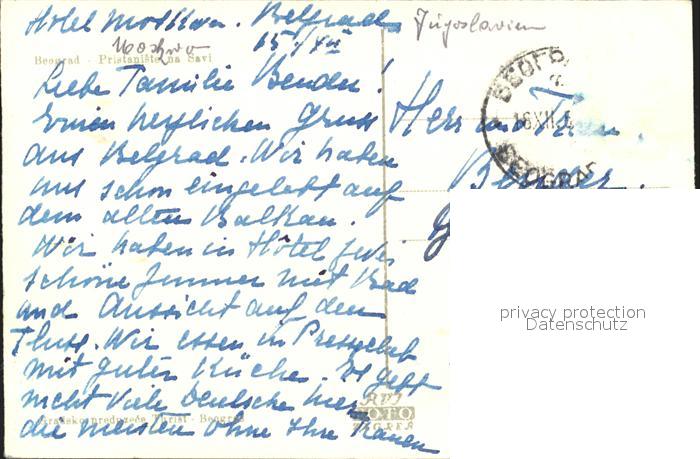 Hotel Moskwa. Belgrad
Moskwa 15./XII
Jugoslavien
Beograd - Pristanište na Savi
Liebe Familie Bender!
Einen herzlichen Gruss
aus Belgrad. Wir haben
uns schon eingelebt auf
dem alten Balkan.
Wir haben im Hôtel zwei
schöne Zimmer mit Bad
und Aussicht auf den
Fluss. Wir essen im Presseclub
mit guten Küche. Es gibt
nicht viele Deutsche hier
die meisten ohne Ihre Frauen
Herr und Frau
BEOGRAD
16.XII.5
BEOGRAD
Gradsko preduzeće Turist - Beograd
FOTO
ZAGREB
privacy protection
Datenschutz